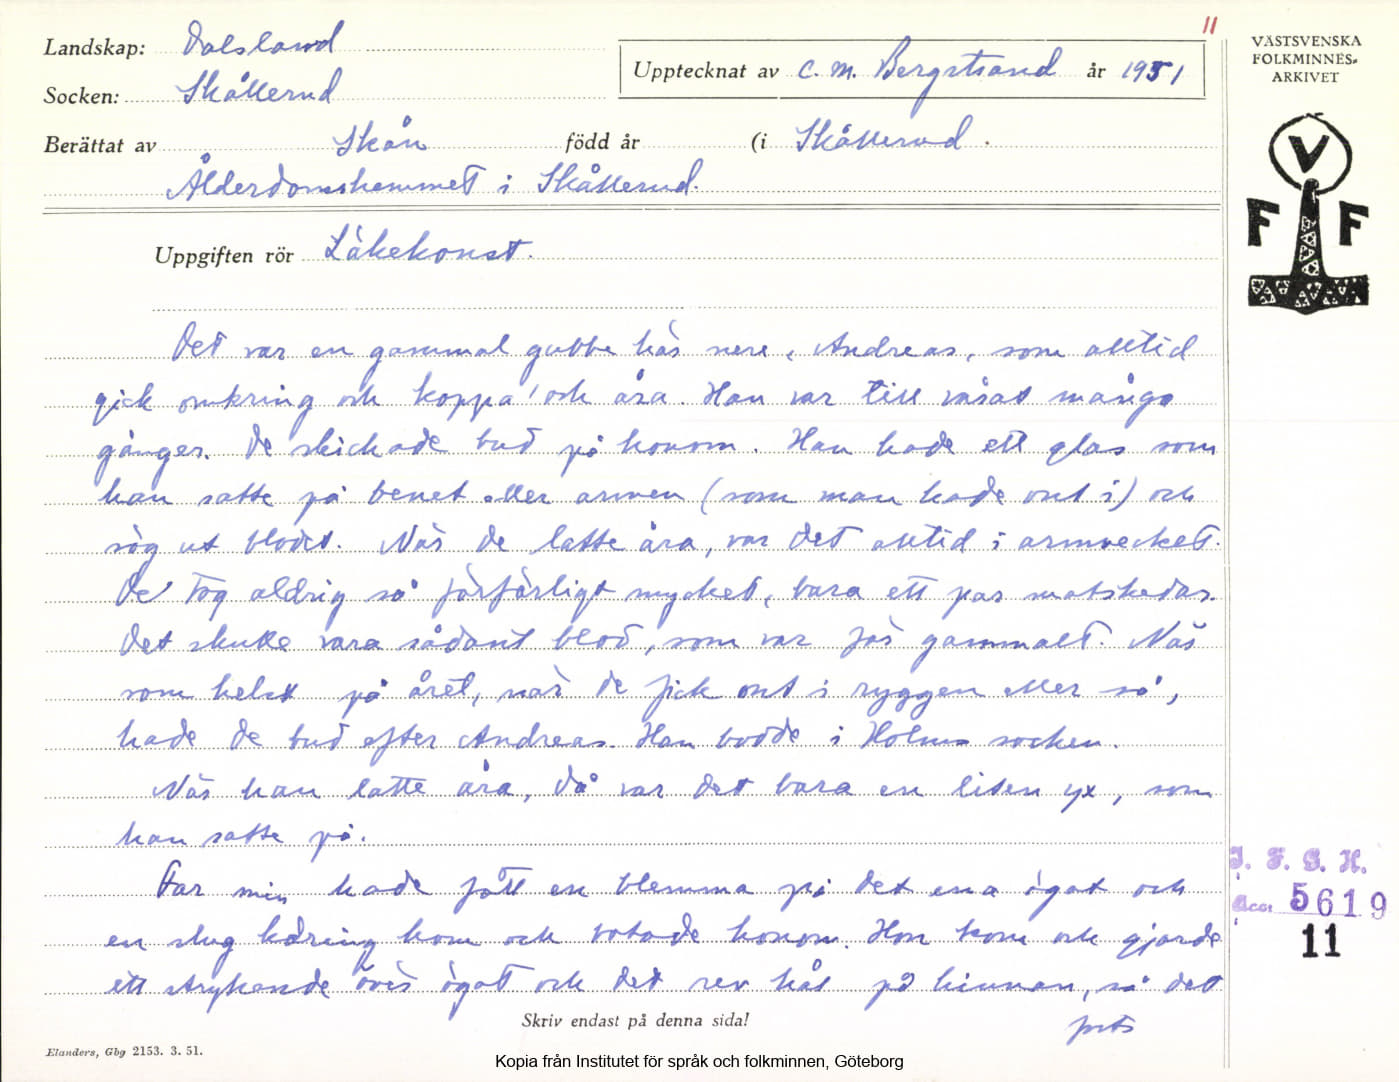 11
Landskap: Dalsland
Upptecknat av C. M. Bergstrand år 1951
Socken: Skållerud
Berättat av Skån född år (i Skållerud.
Ålderdomshemmet i Skållerud.
VÄSTSVENSKA
FOLKMINNES-
ARKIVET
V
F F
Uppgiften rör Läkekonst.
Det var en gammal gubbe här nere, Andreas, som alltid
gick omkring och koppa' och åra. Han var till våras många
gånger. De skickade bud på honom. Han hade ett glas som
han satte på benet eller armen (som man hade ont i) och
sög ut blodet. När de latte åra, var det alltid i armvecket.
De tog aldrig så förfärligt mycket, bara ett par matskedar.
Det skulle vara sådant blod, som var för gammalt. När
som helst på året, när de fick ont i ryggen eller så,
hade de bud efter Andreas. Han bodde i Holms socken.
När han latte åra, då var det bara en liten yx, som
han satte på.
Far min hade fått en blemma på det ena ögat och
en slug käring kom och botade honom. Hon kom och gjorde
ett strykande över ögat och det rev hål på hinnan, så det
forts
Skriv endast på denna sida!
Elanders, Gbg 2153. 3. 51.
I. F. G. H.
Acc: 5619
11
Kopia från Institutet för språk och folkminnen, Göteborg